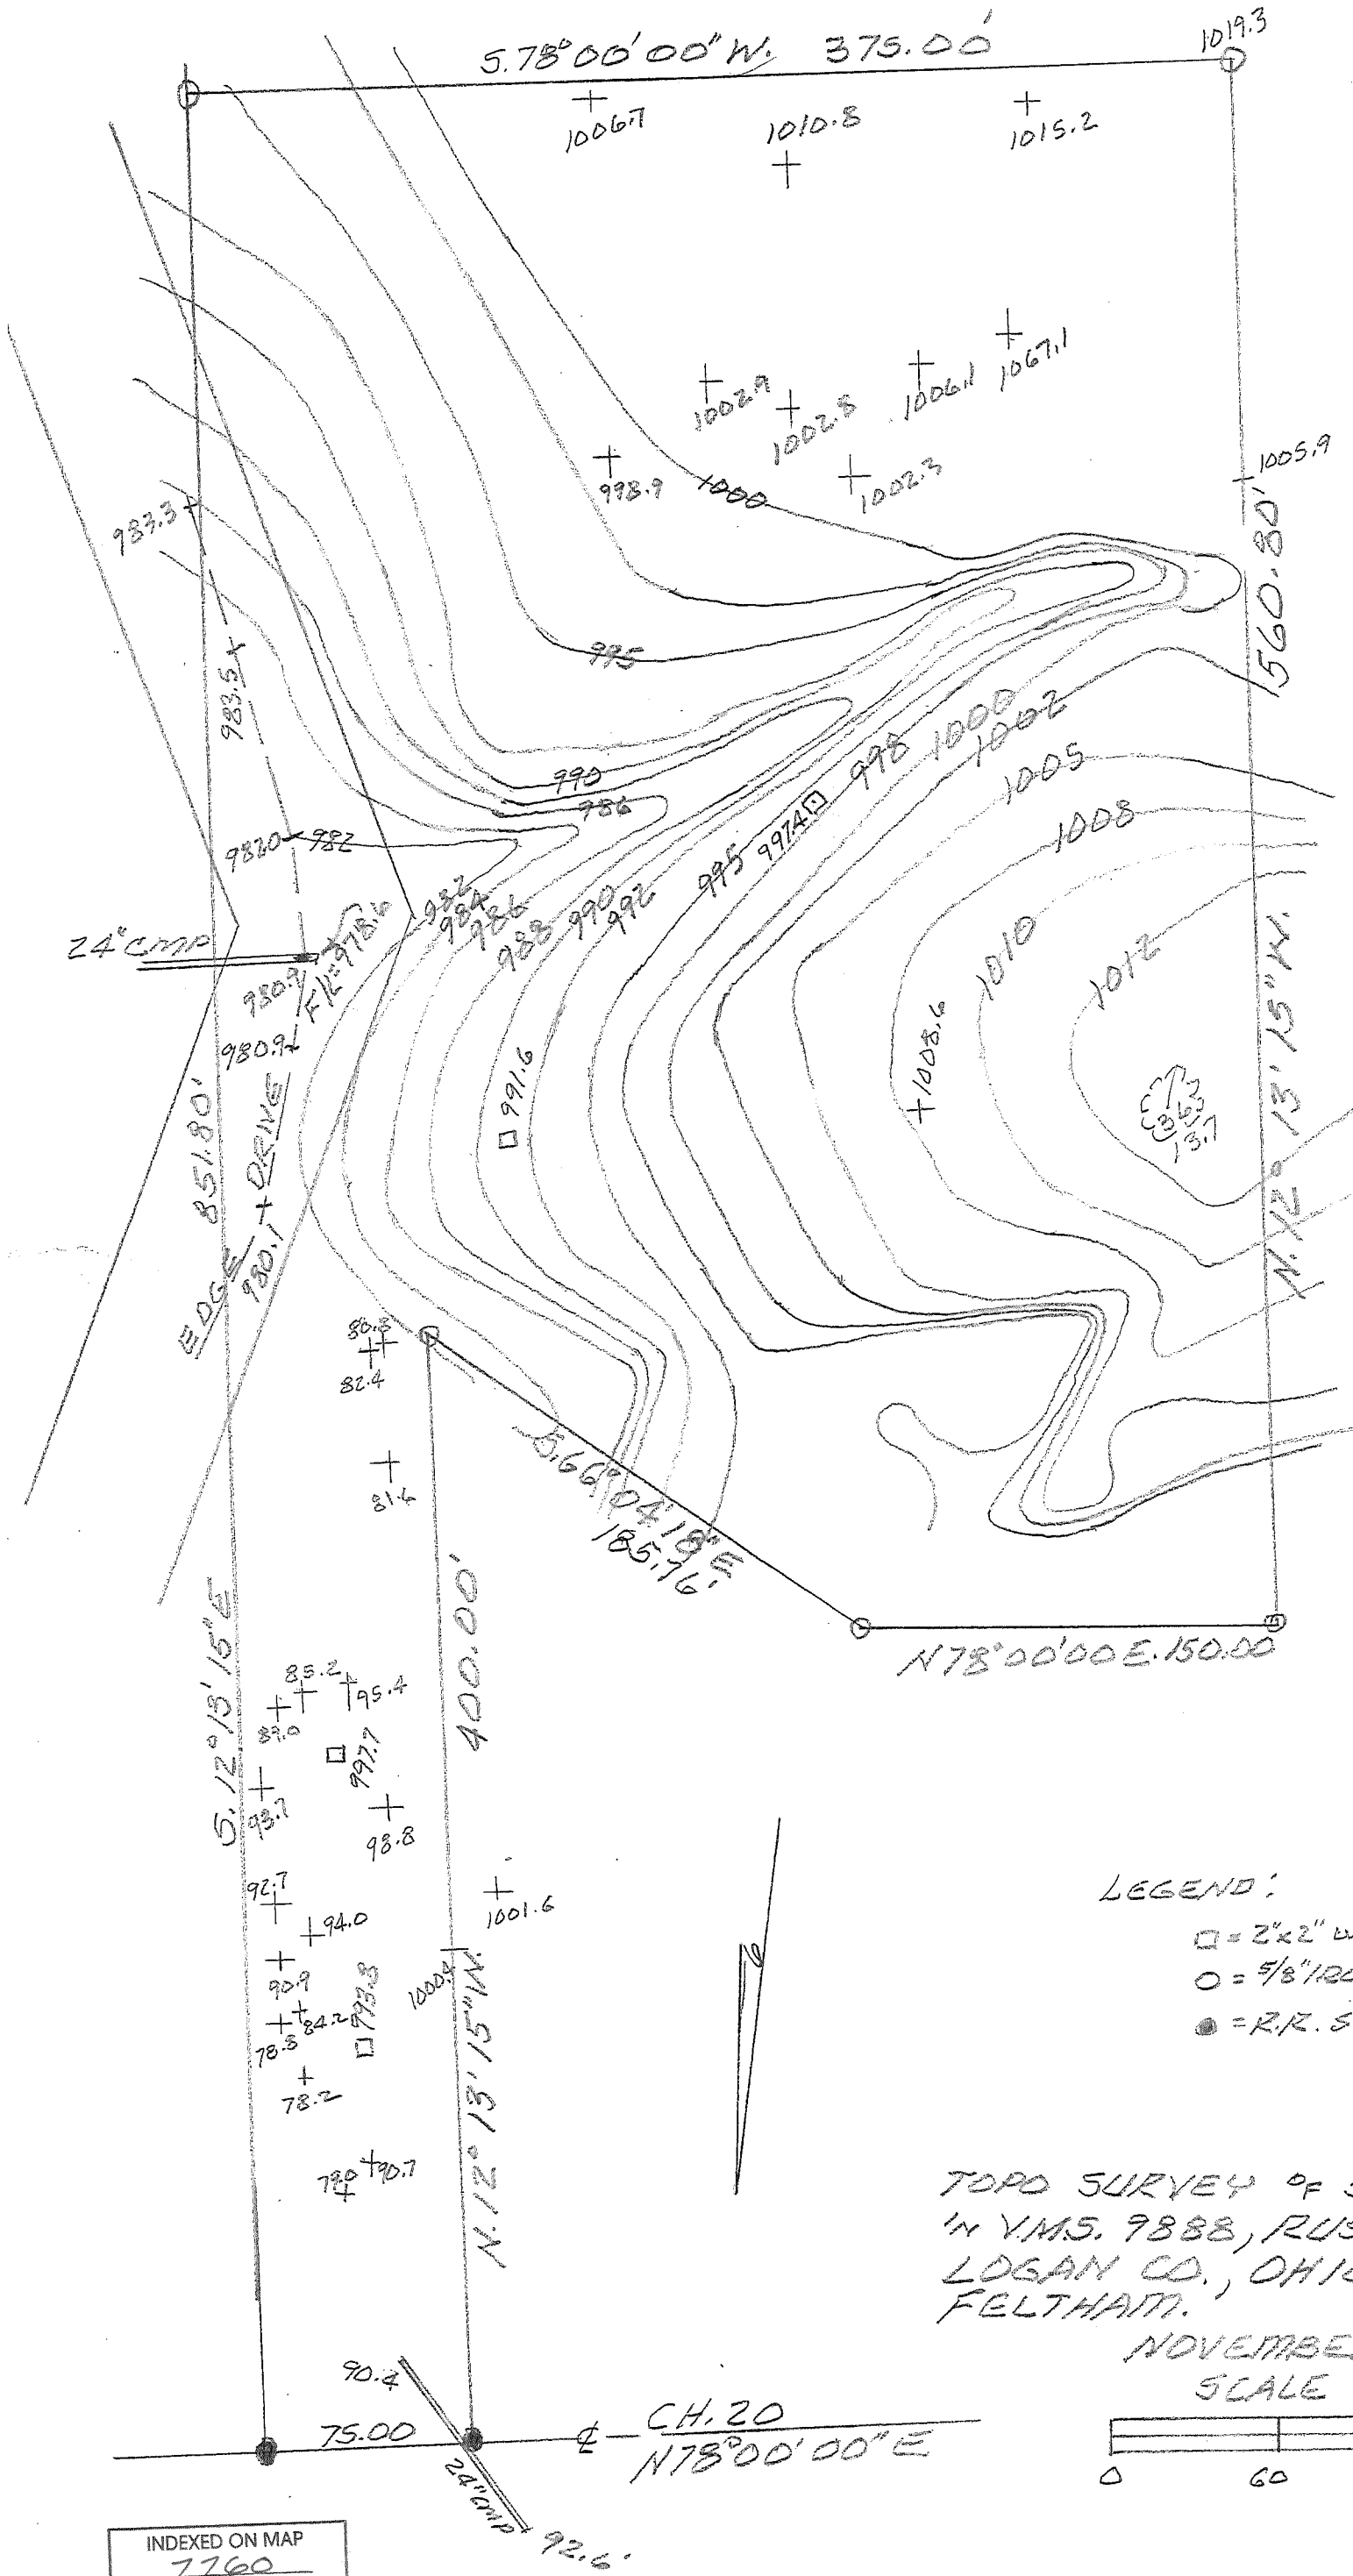 S.78°00'00"W. 375.00'
1019.3
1006.7
1010.8
1015.2
1002.9
1002.8
1006.1
1067.1
998.9
1000
1002.3
1005.9
983.3
560.80'
995
983.5
990
986
998
1000
1002
1005
1008
997.4
995
982.0
982
982
984
986
988
990
992
1010
1012
24"CMP
980.9
F/L=978.6
980.9
991.6
1008.6
36"
13.7
N.12°13'15"W.
851.80'
EDGE DRIVE
980.1
80.3
82.4
81.6
S.66°04'18"E
185.76'
400.00'
N78°00'00E.150.00
S.12°13'15"E
85.2
95.4
89.0
997.7
93.7
98.8
92.7
94.0
1001.6
90.9
993.8
1000.4
84.2
78.8
78.2
79.0
90.7
N.12°13'15"W.
LEGEND:
□ = 2"x2"
○ = 5/8"
● = R.R. S
TOPO SURVEY OF
IN V.M.S. 9888, RUS
LOGAN CO., OHIO
FELTHAM.
NOVEMBE
SCALE
0 60
90.4
75.00
℄ CH.20
N78°00'00"E
24"CMP
92.6
INDEXED ON MAP
7760